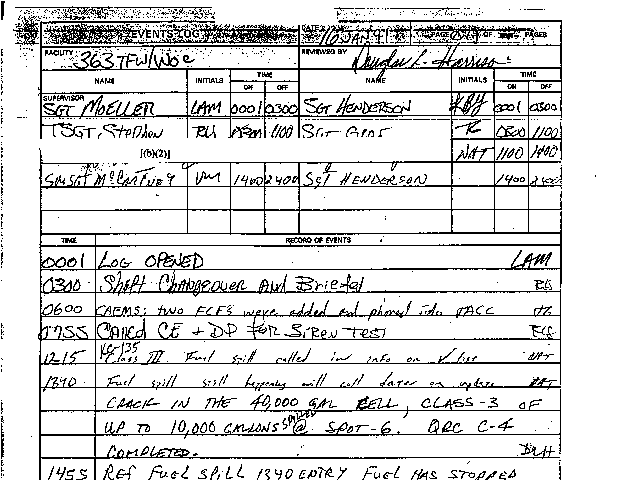 EVENTS LOG DATE 16 JAN 91 PAGE OF PAGES
FACILITY 363TFW/WOC REVIEWED BY Douglas L. Harrison
NAME INITIALS TIME NAME INITIALS TIME
ON OFF ON OFF
SUPERVISOR
SGT MOELLER LAM 0001 0300 SGT HENDERSON 0001 0300
TSGT. Stephon 1100 SGT 0300 1100
[(b)(2)] NAT 1100 1400
SMSGT McCARTNEY 1400 2400 SGT HENDERSON 1400 2400
TIME RECORD OF EVENTS
0001 LOG OPENED LAM
0300 Shift Changeover AND Briefed
0600 CAEMS: two were added and phoned into TACC
0755 CALLED CE + DP FOR SIREN TEST
1215 KC-135 Class III Fuel spill called in info on NAT
1340 Fuel spill still happening will call later on update NAT
CRACK IN THE 40,000 GAL CELL, CLASS-3 OF
UP TO 10,000 GALLONS SPILLED @ SPOT-6. QRC C-4
COMPLETED.
1455 REF FUEL SPILL 1340 ENTRY FUEL HAS STOPPED